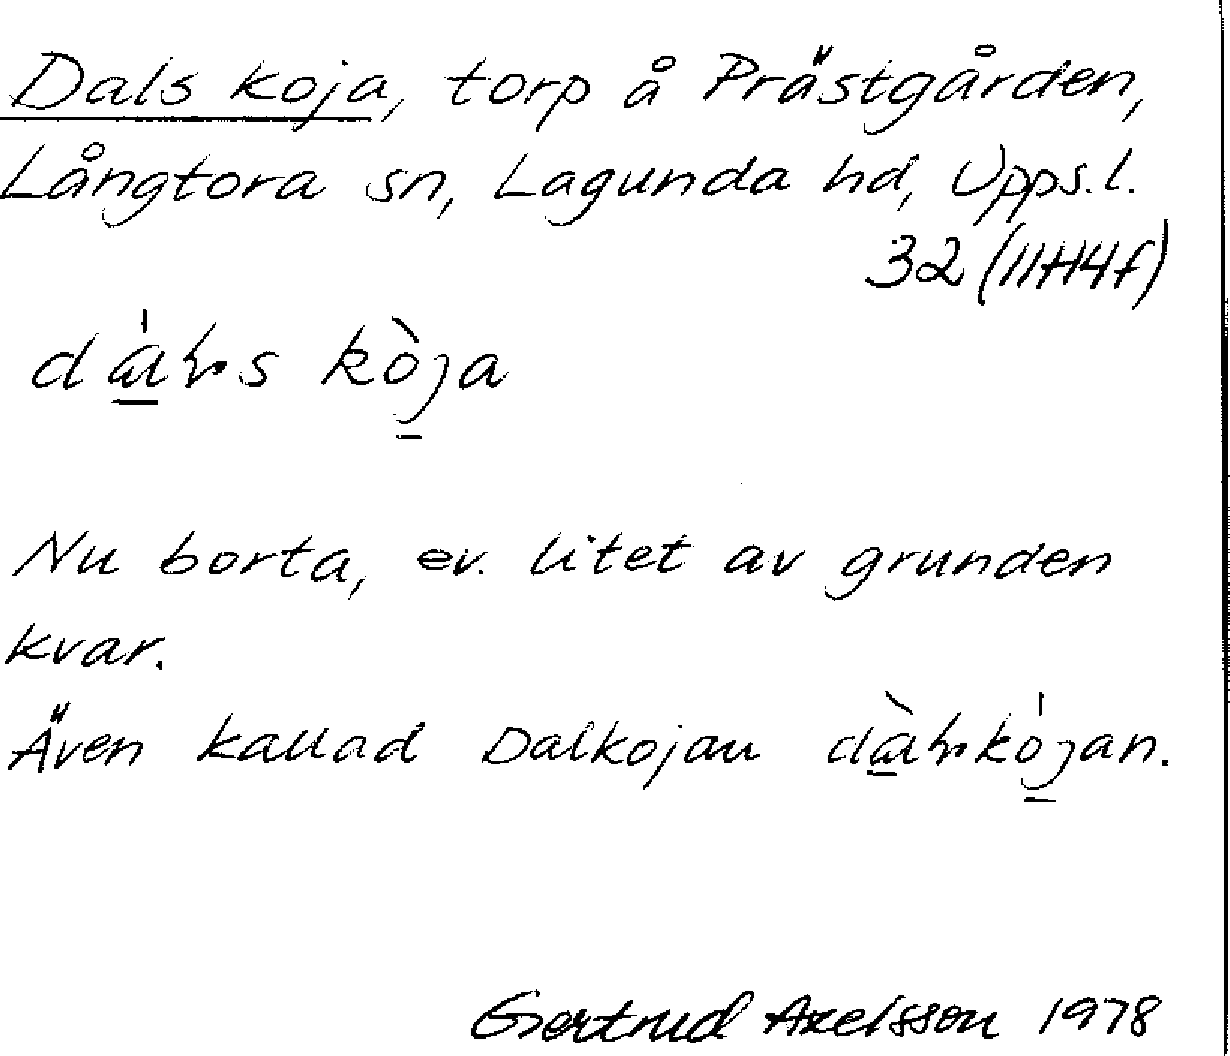 Dals koja, torp å Prästgården,
Långtora sn, Lagunda hd, Upps.l.
32 (11H4f)
kòja
Nu borta, ev. litet av grunden
kvar.
Även kallad Dalkojan
Gertrud Axelsson 1978